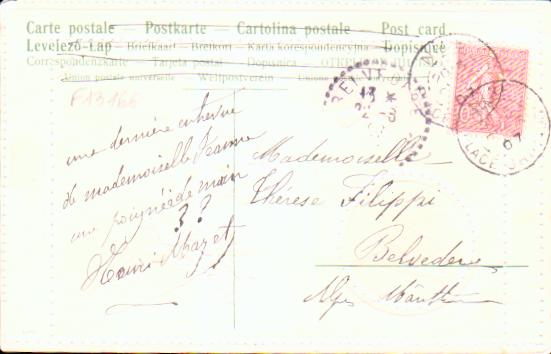 Carte postale — Postkarte — Cartolina postale — Post card
Levelező-Lap — Briefkaart — Brefkort — Karta korespondencyjna — Dopisnice
Correspondenzkarte — Tarjeta postal — Dopisnica —
Union postale universelle Weltpostverein
F13166
une dernière
de mademoiselle Jeanne
une poignée de main
??
Henri Mazet
Mademoiselle
Thérese Filippi
Belvedere
Alpes
13
07
PLACE